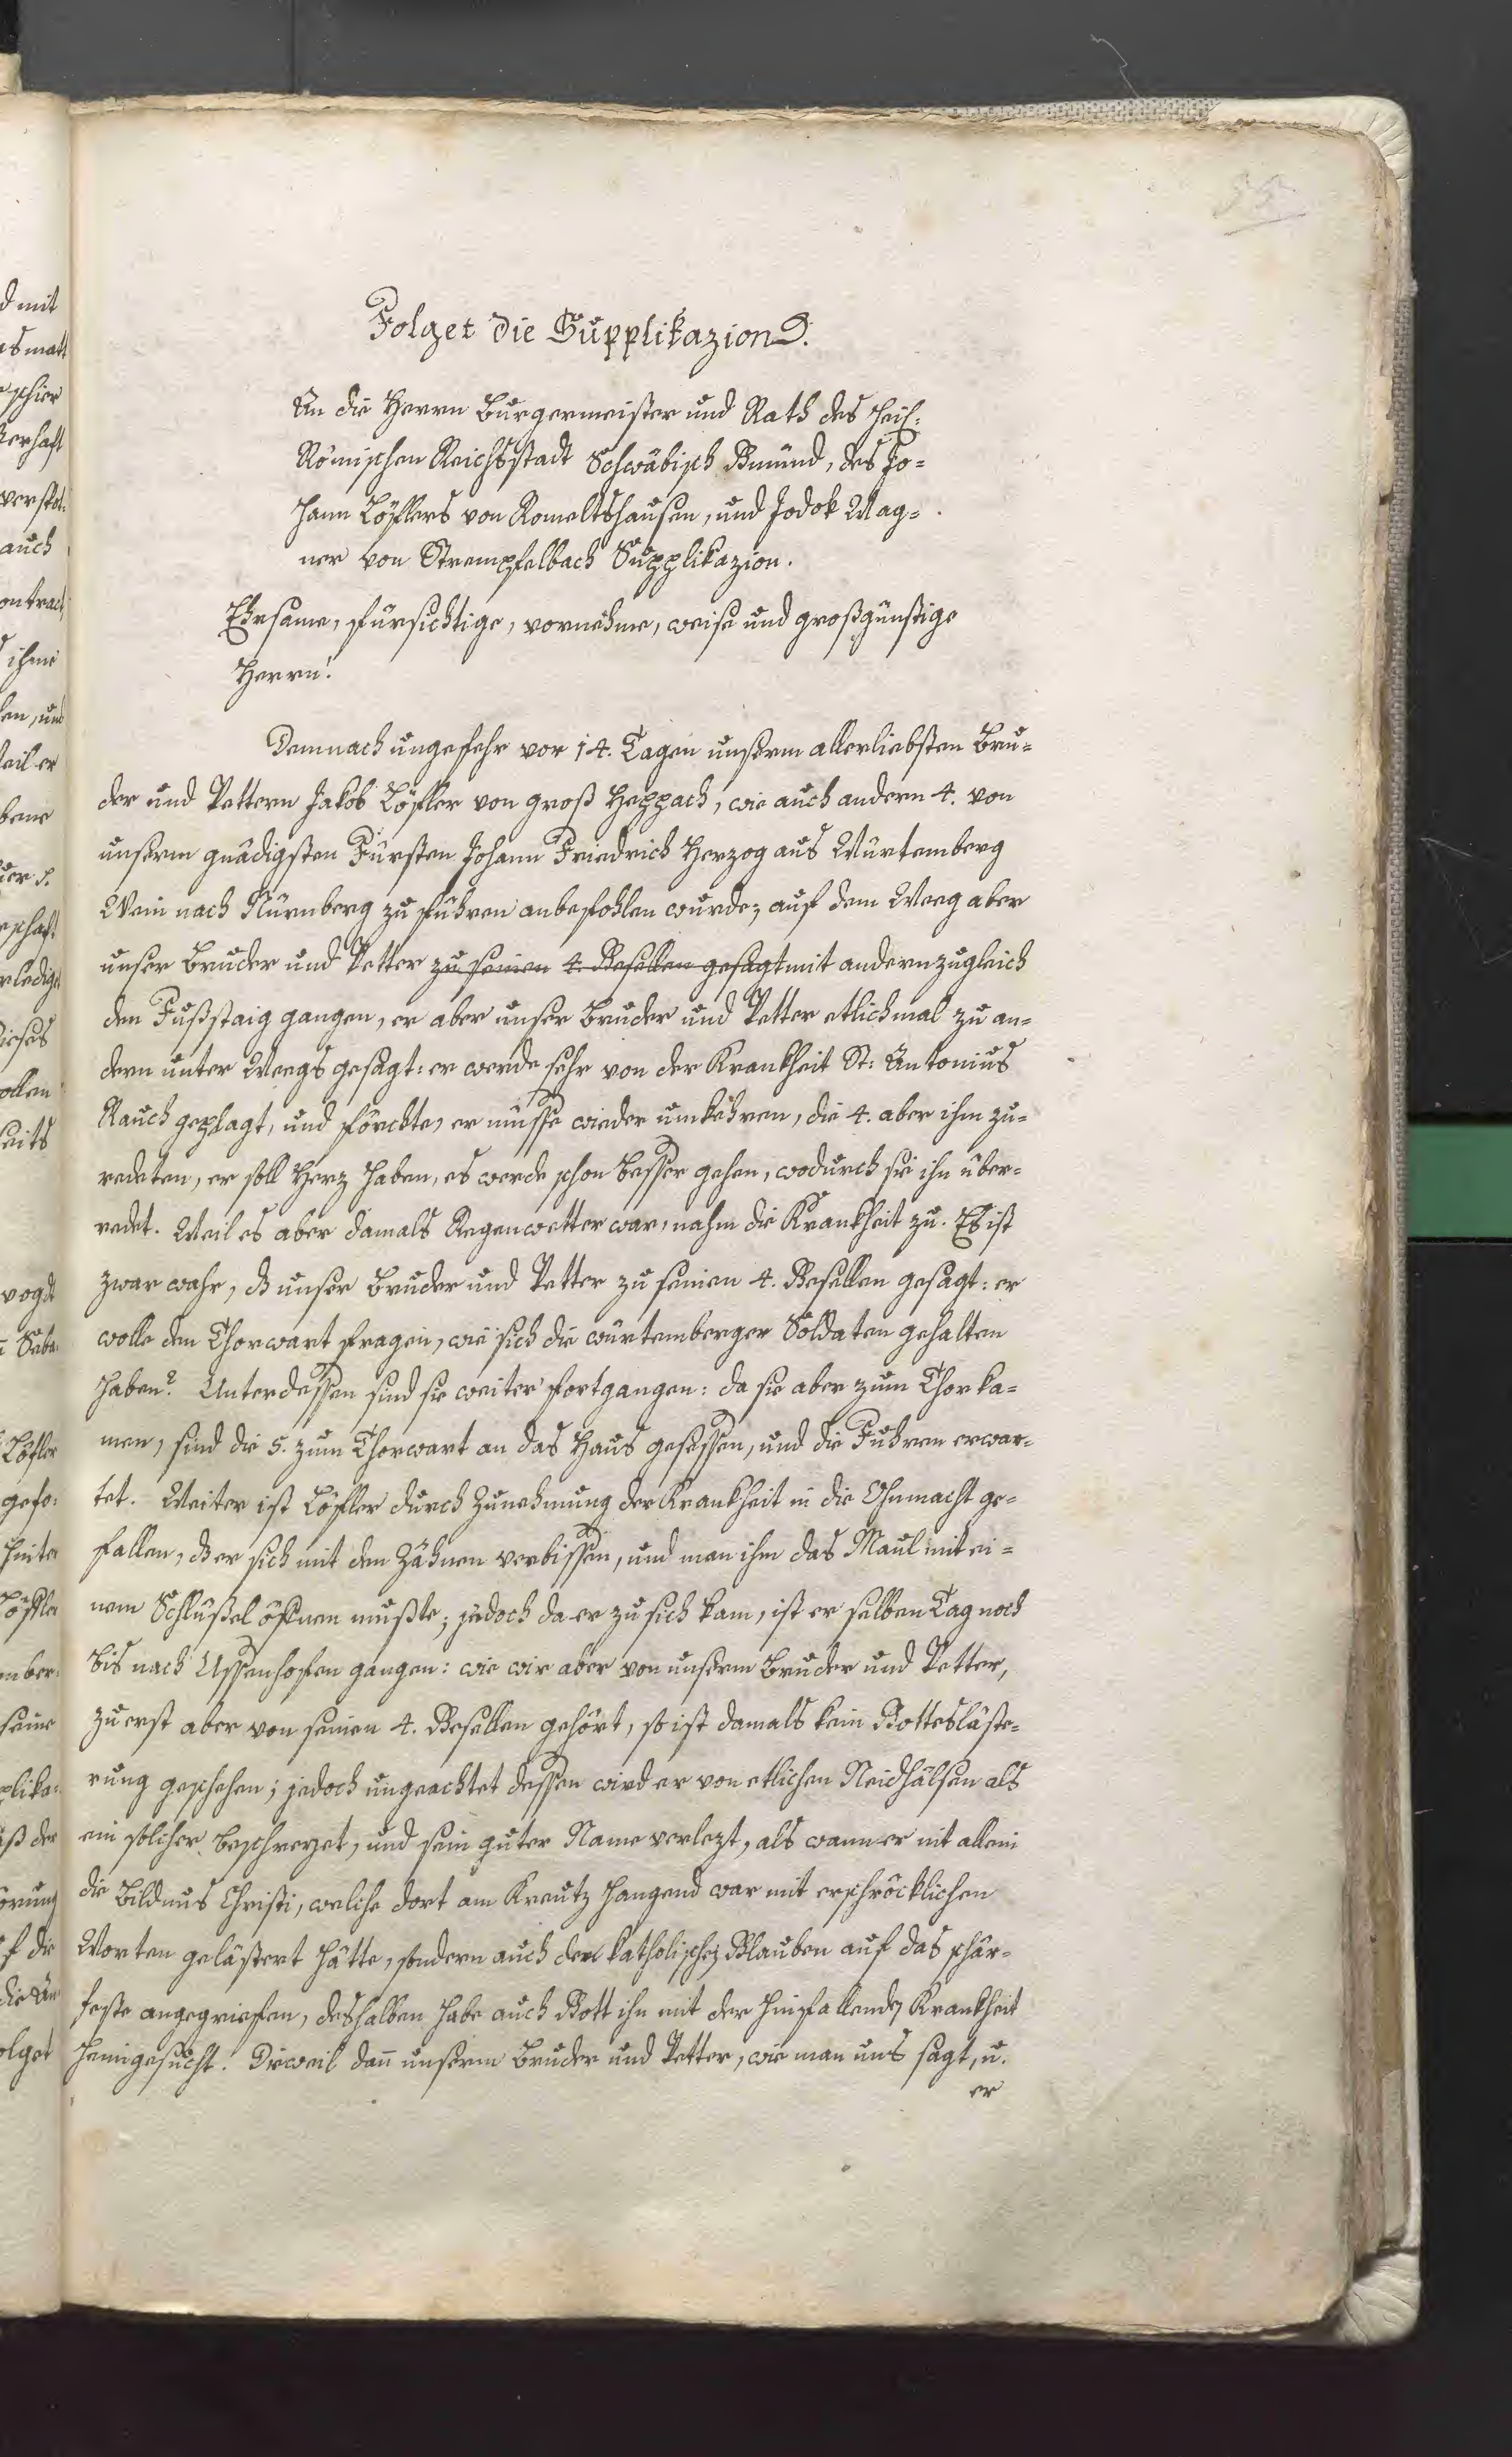 55
Folget die Supplikazion.
An die Herrn Burgermeister und Rath des Heil:
Römischen Reichsstadt Schwäbisch Gmünd, des Jo=
hann Löflers von Romeltshausen, und Jodok Wag=
ner von Strempfelbach Supplikazion.
Ehrsame, fürsichtige, vornehme, weise und großgünstige
Herrn!
Demnach ungefehr vor 14. Tagen unserm allerliebsten Bru=
der und Vettern Jakob Löfler von groß Heppach, wie auch andern 4. von
unserm gnädigsten Fürsten Johann Friedrich Herzog aus Würtemberg
Wein nach Nürnberg zu führen anbefohlen wurde, auf dem Weeg aber
unser Bruder und Vetter zu seinen 4. Gesellen gesagt mit andern zugleich
den Fußstaig gangen, er aber unser Bruder und Vetter etlichmal zu an=
dern unter Weegs gesagt: er werde sehr von der Krankheit St: Antonius
Rauch geplagt, und förchte, er müsse wieder umkehren, die 4. aber ihm zu=
redeten, er soll Herz haben, es werde schon besser gehen, wodurch sie ihn über=
redet. Weil es aber damals Regenwetter war, nahm die Krankheit zu. Es ist
zwar wahr, dß unser Bruder und Vetter zu seinen 4. Gesellen gesagt: er
wolle den Thorwart fragen, wie sich die würtemberger Soldaten gehalten
haben? Unterdessen sind sie weiter fortgangen: da sie aber zum Thor ka=
men, sind die 5. zum Thorwart an das Haus gesessen, und die Fuhren erwar=
tet. Weiter ist Löfler durch Zunehmung der Krankheit in die Ohnmacht ge=
fallen, dß er sich mit den Zähnen verbissen, und man ihm das Maul mit ei=
nem Schlüßel öfnen mußte; jedoch da er zu sich kam, ist er selben Tag noch
bis nach Ussenhofen gangen: wie wir aber von unserm Bruder und Vetter,
zu erst aber von seinen 4. Gesellen gehört, so ist damals kein Gottesläste=
rung geschehen; jedoch ungeachtet dessen wird er von etlichen Neidhälsen als
ein solcher beschreyet, und sein guter Name verlezt, als wann er nit allein
die Bildnus Christi, welche dort am Kreutz hangend war mit erschröcklichen
Worten gelästert hätte, sondern auch den katholischen Glauben auf das schär=
feste angegriefen, deshalben habe auch Gott ihn mit der hinfallenden Krankheit
heimgesucht. Dieweil dañ unserm Bruder und Vetter, wie man uns sagt, u.
er